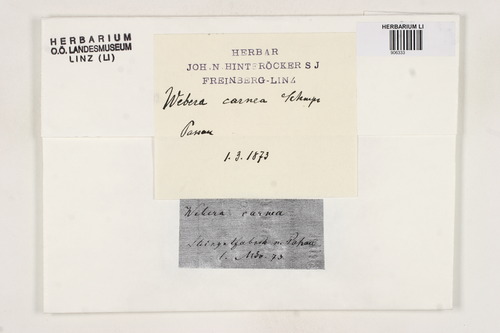 HERBARIUM
O.Ö. LANDESMUSEUM
LINZ (LI)
HERBARIUM LI
HERBAR
JOH. N. HINTERÖCKER S J
FREINBERG-LINZ
Webera carnea Schimp
Passau
1. 3. 1873
Webera carnea
1. März 73